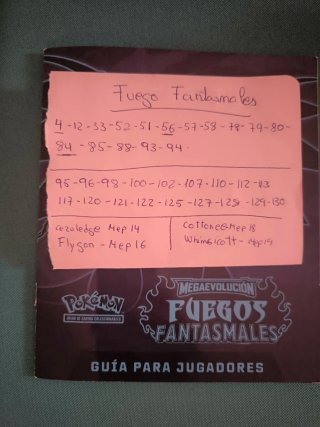 Fuego Fantasmales
4-12-33-52-51-56-57-58-78-79-80-
84-85-88-93-94-
95-96-98-100-102-107-110-112-113
117-120-121-122-125-127-128-129-130
Mep 14
Cottonee Mep 18
Flygon - Mep 16
Whimsicott - Mep 19
POKÉMON
JUEGO DE CARTAS COLECCIONABLES
MEGAEVOLUCIÓN
FUEGOS
FANTASMALES
GUÍA PARA JUGADORES